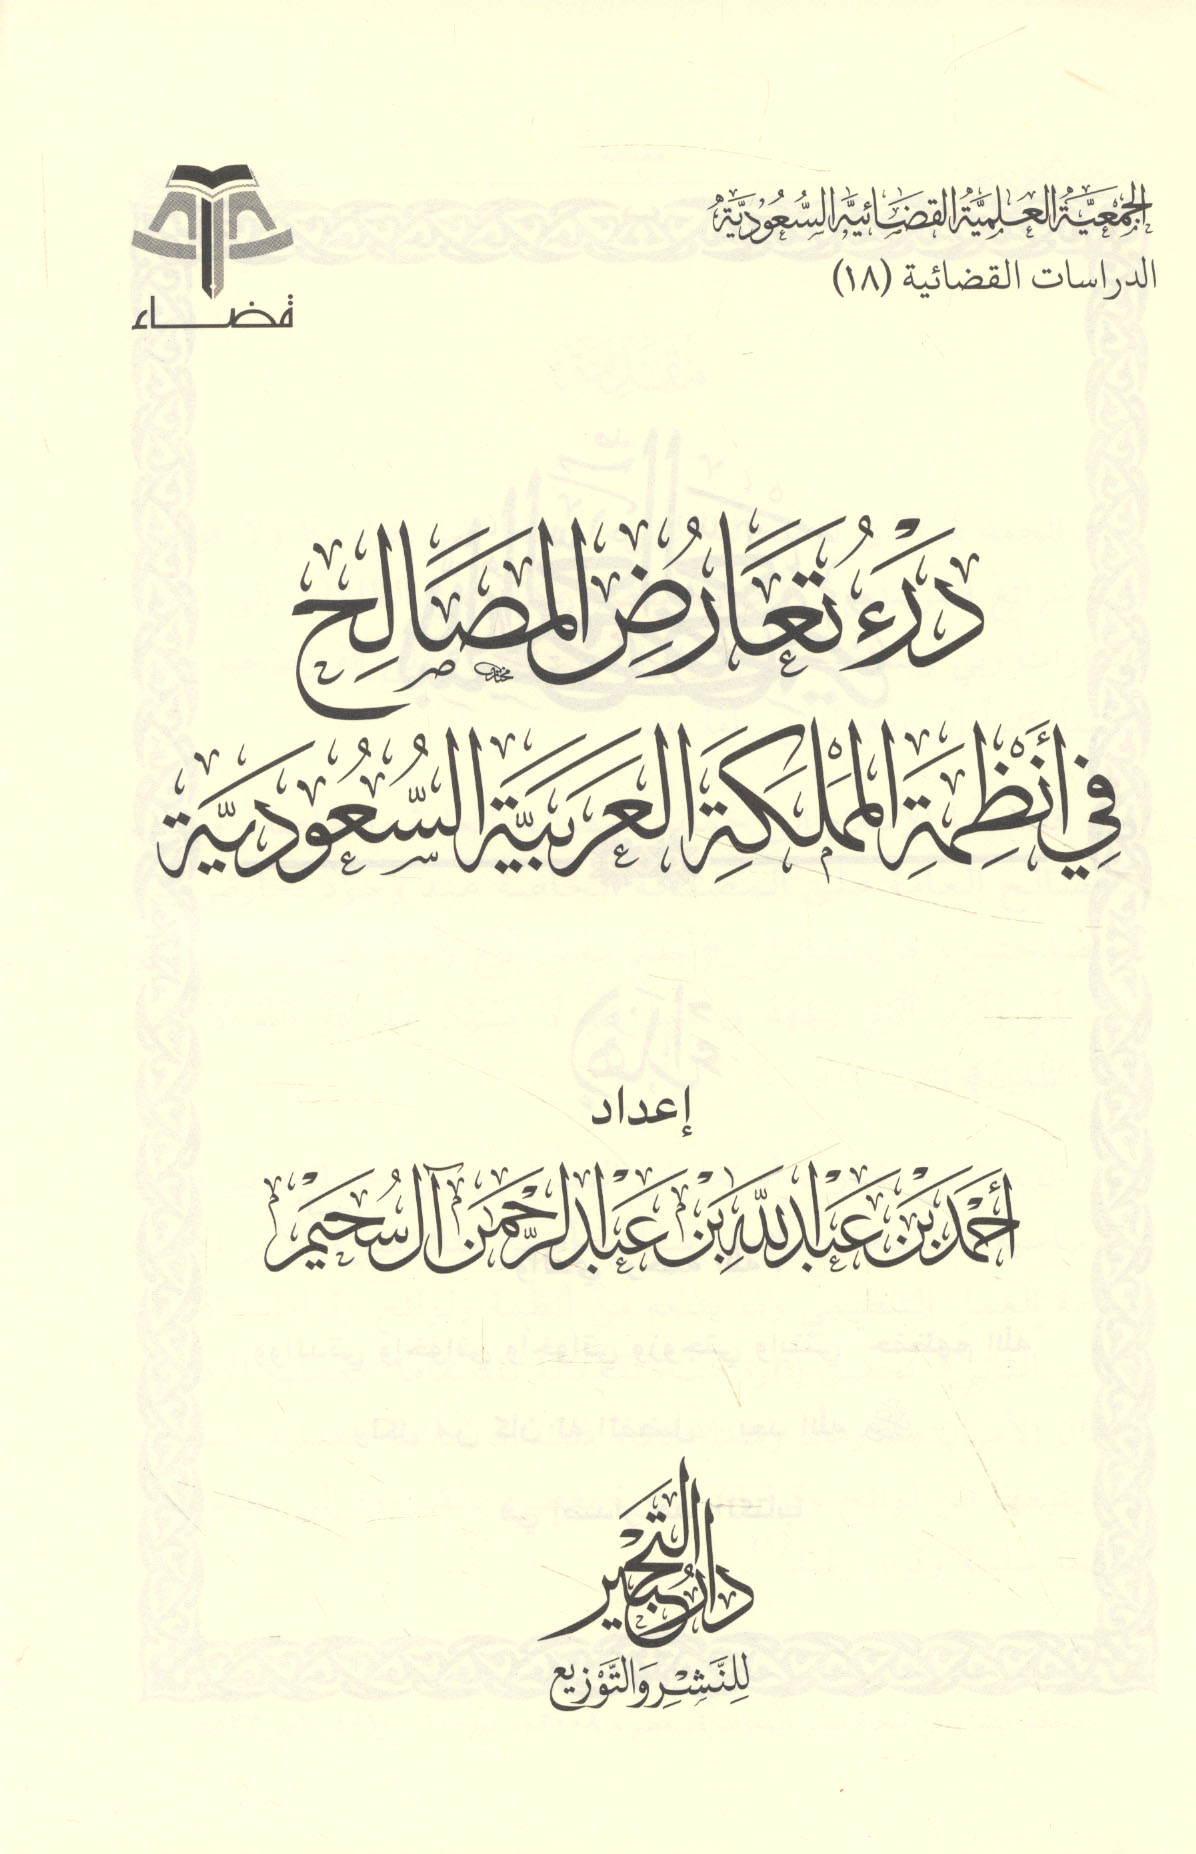 الجمعية العلمية القضائية السعودية
الدراسات القضائية (١٨)
قضاء
درء تعارض المصالح
في أنظمة المملكة العربية السعودية
إعداد
أحمد بن عبد الله بن عبد الرحمن آل سحيم
دار التحبير
للنشر والتوزيع